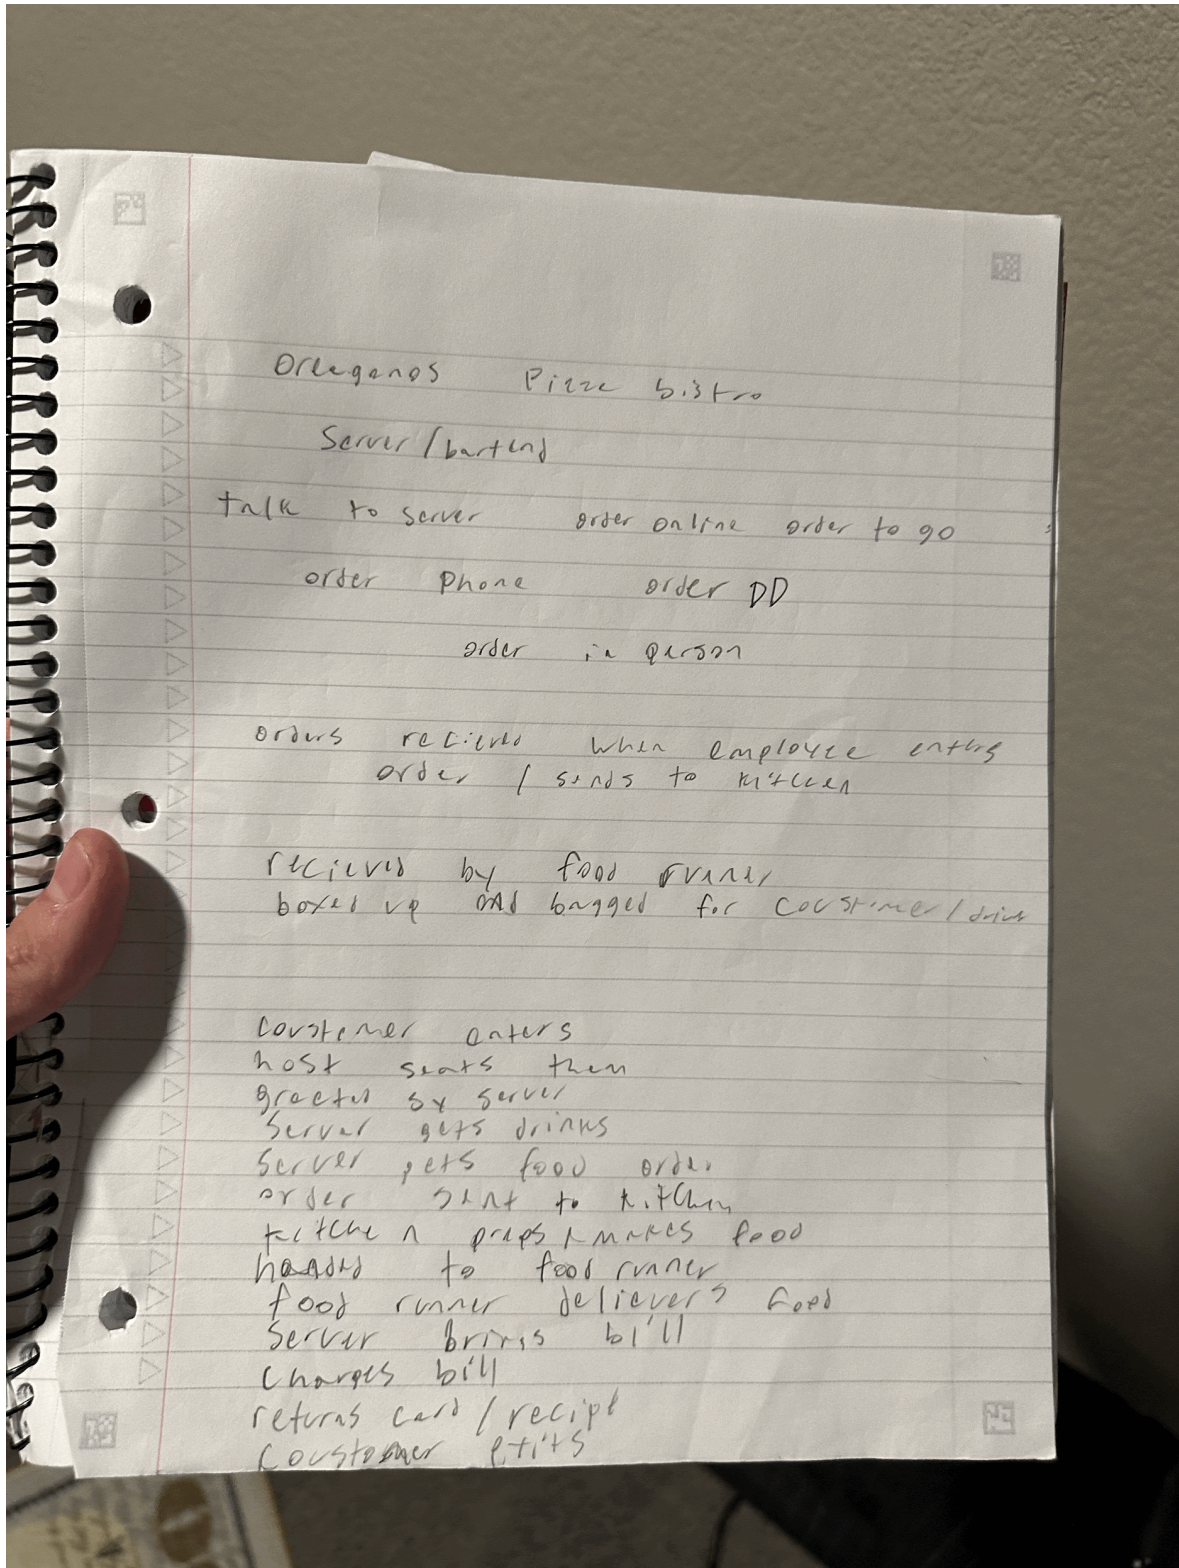 Oreganos Pizze bistro
Server/bartend
talk to server order online order to go
order phone order DD
order in person
orders recieved when employee enters
order / sends to kitchen
recieved by food runner
boxed up and bagged for coustimer/
coustemer enters
host seats them
greeted by server
server gets drinks
server gets food order
order sent to kitchen
kitchen preps + makes food
handed to food runner
food runner delievers food
server brings bill
charges bill
returns card/recipt
coustomer exits